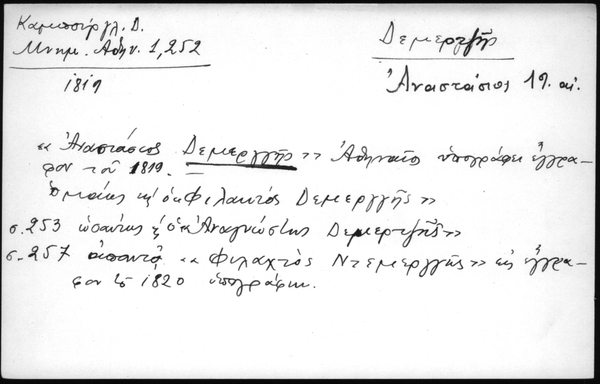 Καμπούρογλ. Δ.
Μνημ. Αθην. 1, 252
1819
Δεμερτζῆς
Ἀναστάσιος 19. αἰ.
«Ἀναστάσιος Δεμερτζῆς» Ἀθηναῖος ὑπογράφει ἔγγρα-
φον τοῦ 1819. =
Ὁμοίως κ ὁ «Φιλακτὸς Δεμερτζῆς»
σ. 253 ὡσαύτως κ ὁ «Ἀναγνώστης Δεμερτζῆς»
σ. 257 ἀπαντᾷ «Φιλαχτὸς Ντεμερτζῆς» εἰς ἔγγρα-
φον τοῦ 1820 ὑπογράφων.